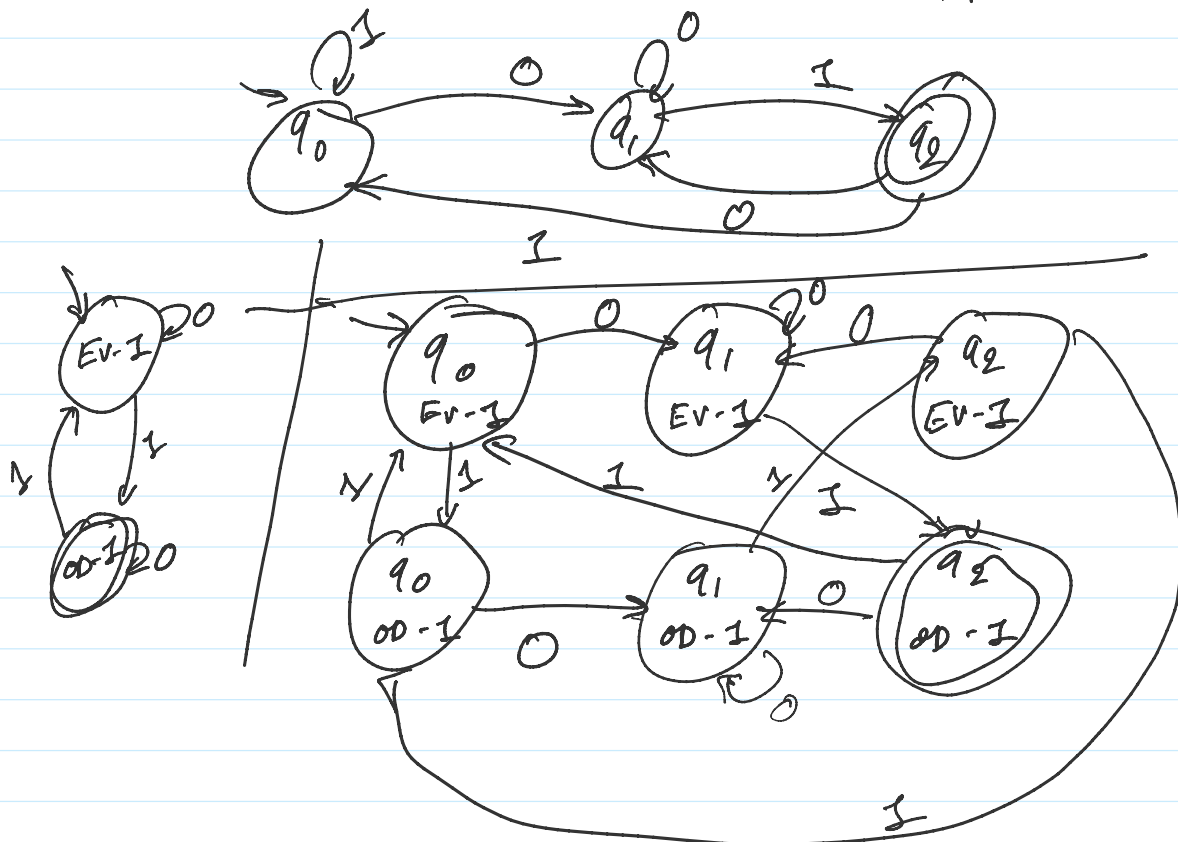 1
0
0
1
q0
q1
q2
0
1
Ev-1
0
1
1
OD-1
0
q0
Ev-1
0
q1
Ev-1
0
0
q2
Ev-1
1
1
1
1
1
q0
OD-1
0
q1
OD-1
0
0
q2
OD-1
1